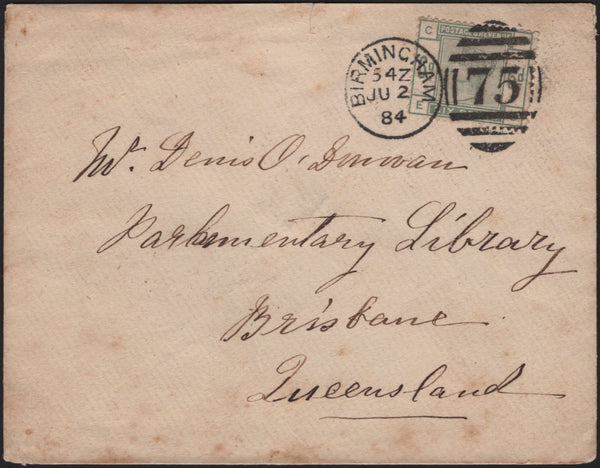 C POSTAGE & REVENUE
BIRMINGHAM
54Z
JU 2
84
75
d
E
Mr. Denis O'Donovan
Parlimentary Library
Brisbane
Queensland